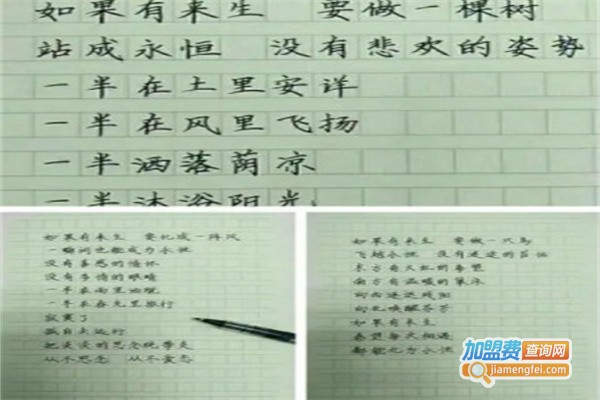 如果有来生 要做一棵树
站成永恒 没有悲欢的姿势
一半在土里安详
一半在风里飞扬
一半洒落荫凉
一半沐浴阳光
如果有来生 要化成一阵风
一瞬间也能成为永恒
没有善感的情怀
没有多情的眼睛
一半在雨里洒脱
一半在光里旅行
寂寞了
孤自去远行
把淡淡的思念统带走
从不思念 从不爱恋
如果有来生 要做一只鸟
飞越永恒 没有迷途的苦恼
东方有火红的希望
南方有温暖的巢床
向西逐退残阳
向北唤醒芬芳
如果有来生
希望每次相遇
都能化为永恒
加盟费查询网
jiamengfei.com